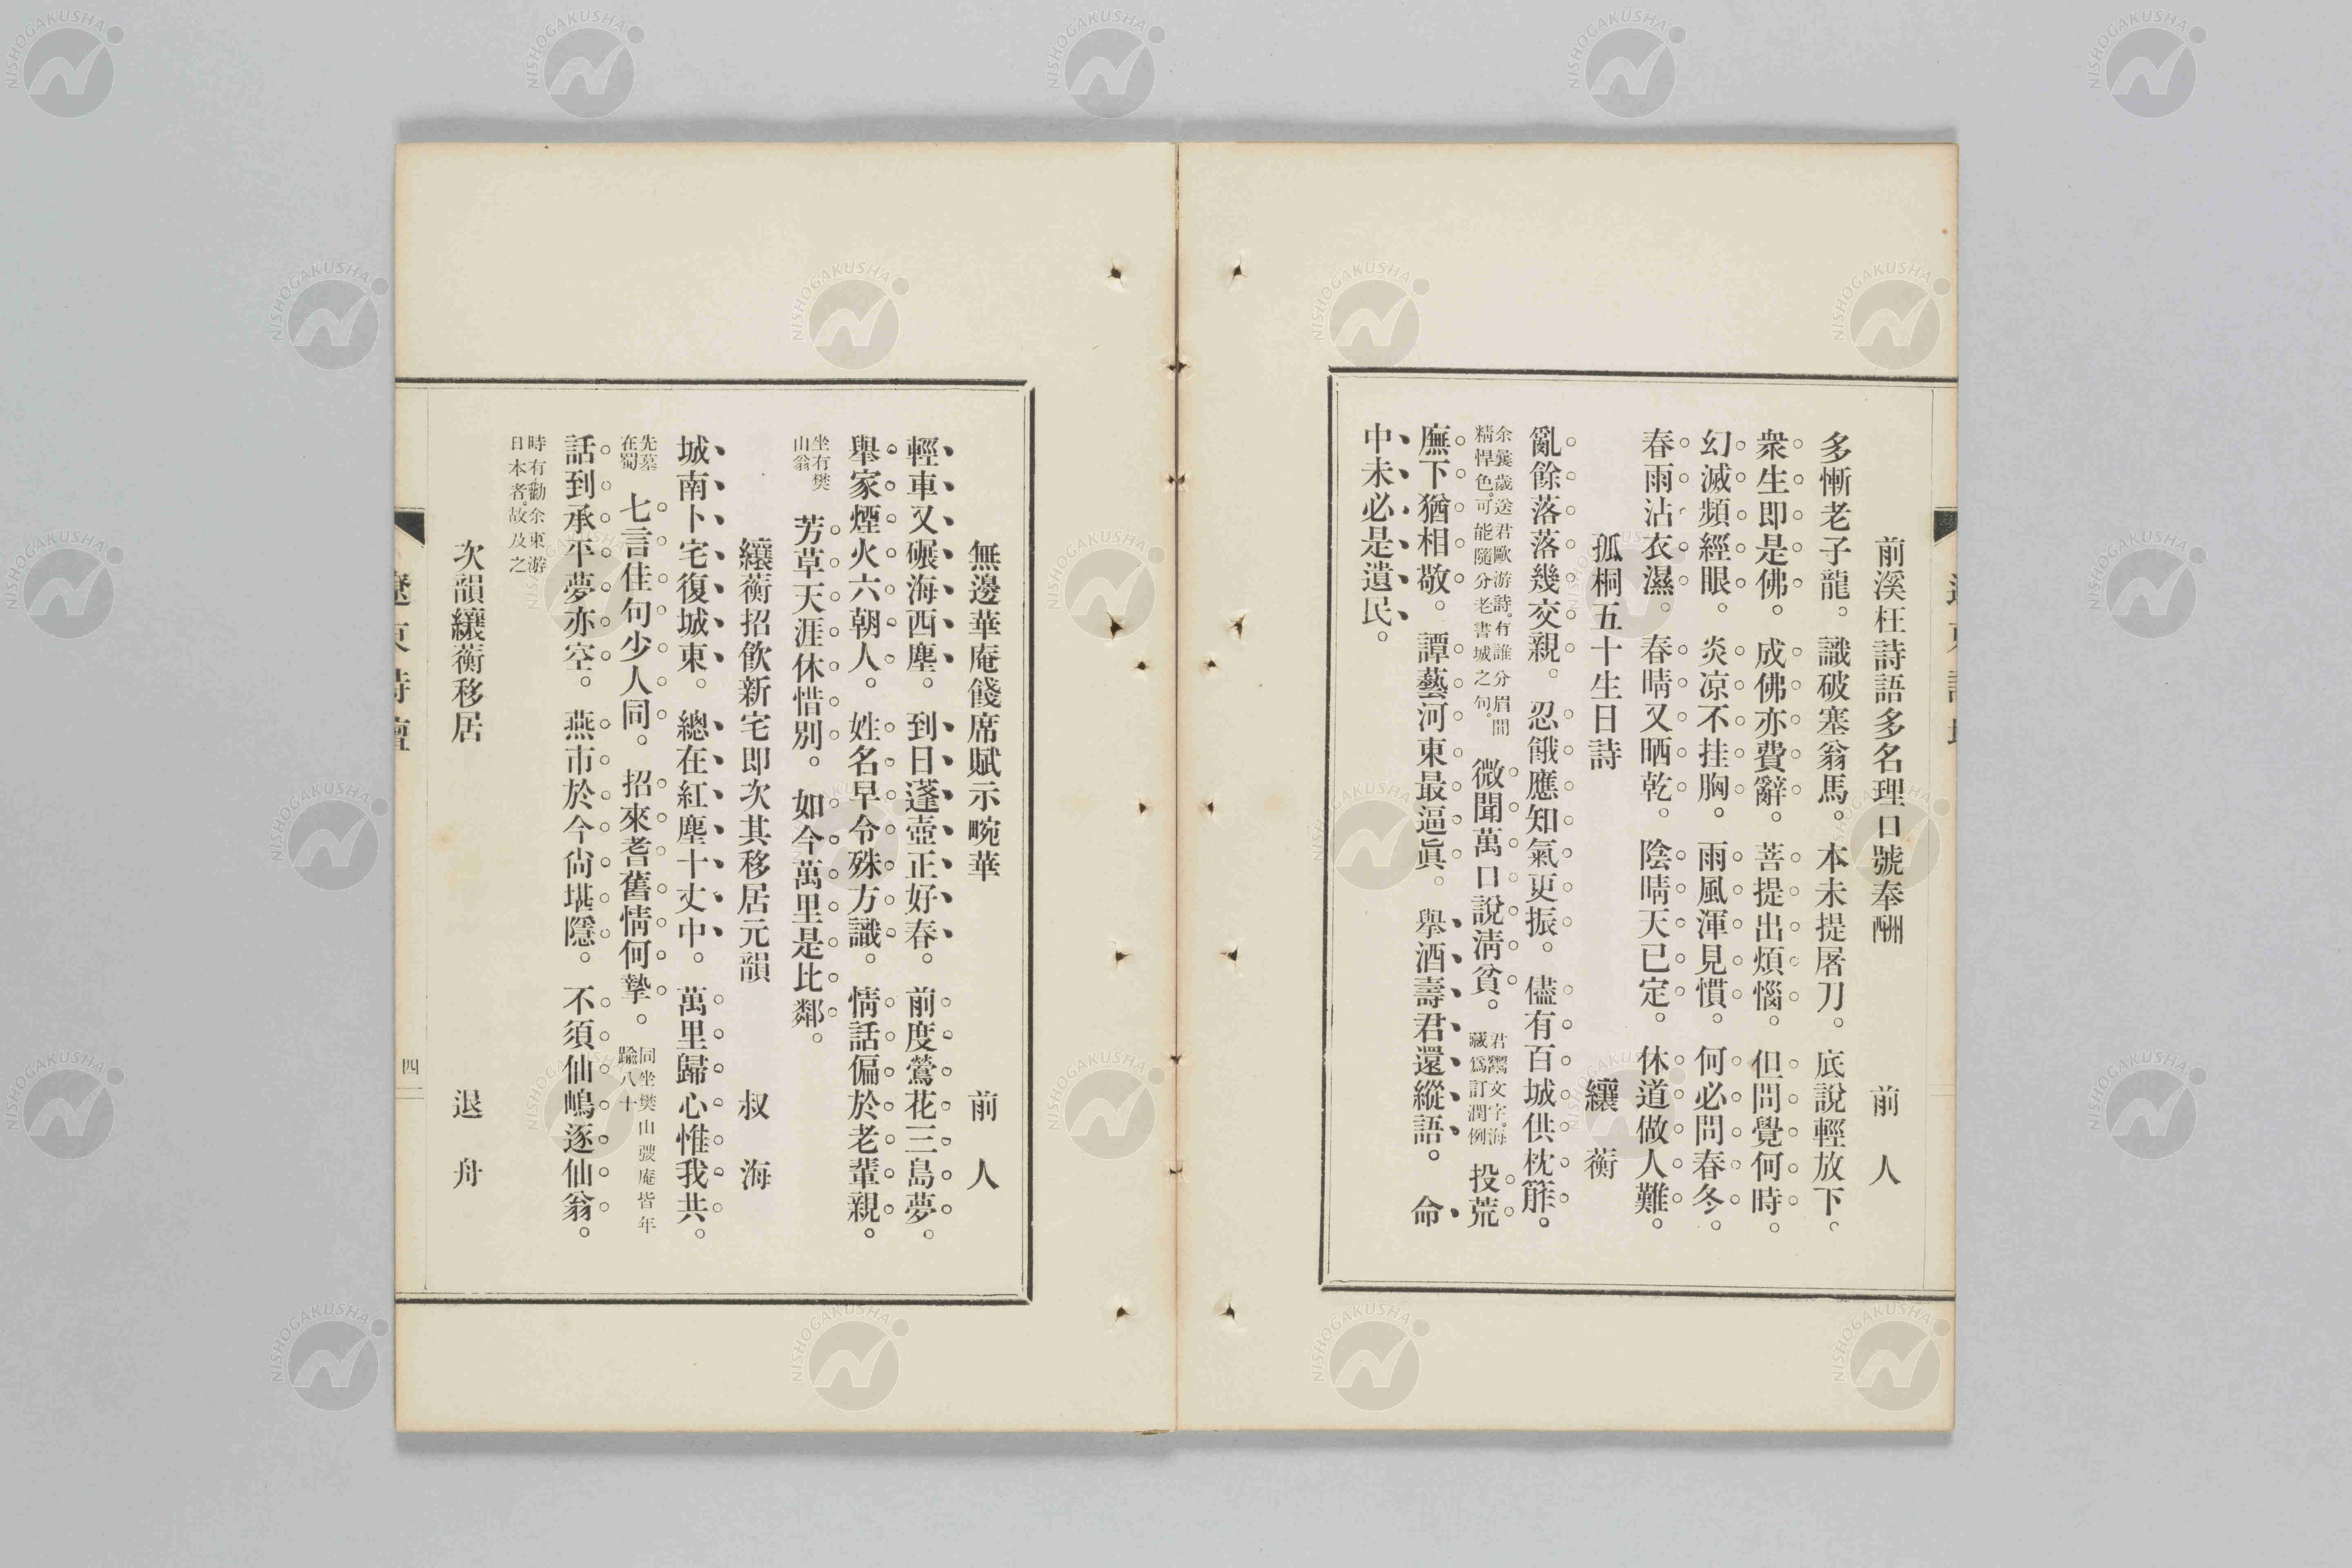 前溪枉詩語多名理口號奉酬　前人
多慚老子龍。識破塞翁馬。本未提屠刀。底說輕放下。
衆生即是佛。成佛亦費辭。菩提出煩惱。但問覺何時。
幻滅頻經眼。炎凉不挂胸。雨風渾見慣。何必問春冬。
春雨沾衣濕。春晴又晒乾。陰晴天已定。休道做人難。
孤桐五十生日詩　纕蘅
亂餘落落幾交親。忍餓應知氣更振。儘有百城供枕胙。
余曩歲送君歐游詩。有誰分眉間精悍色。可能隨分老書城之句。微聞萬口說淸貧。君鬻文字。海藏爲訂潤例 投荒
廡下猶相敬。譚藝河東最逼眞。舉酒壽君還縱語。命
中未必是遺民。
無邊華庵餞席賦示畹華　前人
輕車又碾海西塵。到日蓬壺正好春。前度鶯花三島夢。
舉家煙火六朝人。姓名早令殊方識。情話偏於老輩親。
坐有樊山翁 芳草天涯休惜別。如今萬里是比鄰。
纕蘅招飮新宅即次其移居元韻　叔海
城南卜宅復城東。總在紅塵十丈中。萬里歸心惟我共。
先墓在蜀 七言佳句少人同。招來耆舊情何摯。同坐樊山弢庵皆年踰八十
話到承平夢亦空。燕市於今尙堪隱。不須仙嶋逐仙翁。
時有勸余東游日本者。故及之
次韻纕蘅移居　退舟
遼東詩壇
四
NISHOGAKUSHA